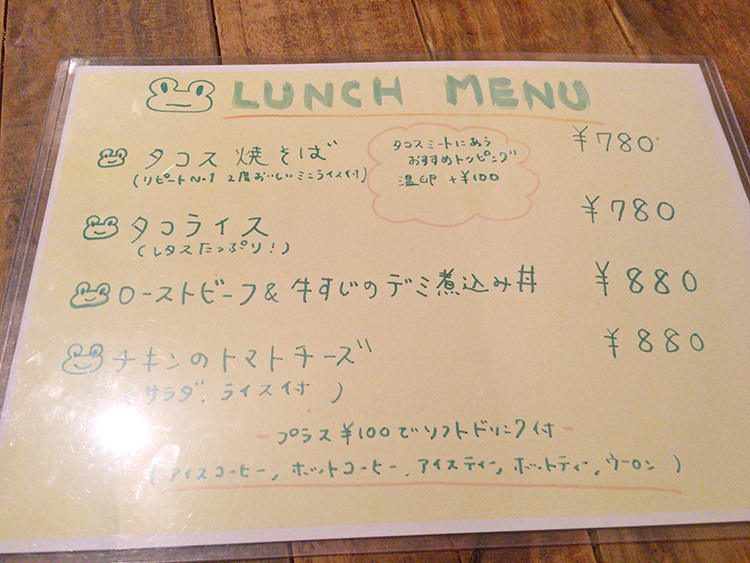 LUNCH MENU
タコス焼そば ¥780
(リピートNo.1 2度おいしいミニライス付)
タコスミートにあう
おすすめトッピング
温卵 +¥100
タコライス ¥780
(レタスたっぷり!)
ローストビーフ&牛すじのデミ煮込み丼 ¥880
チキンのトマトチーズ ¥880
(サラダ、ライス付)
-プラス¥100でソフトドリンク付-
(アイスコーヒー, ホットコーヒー, アイスティー, ホットティー, ウーロン)